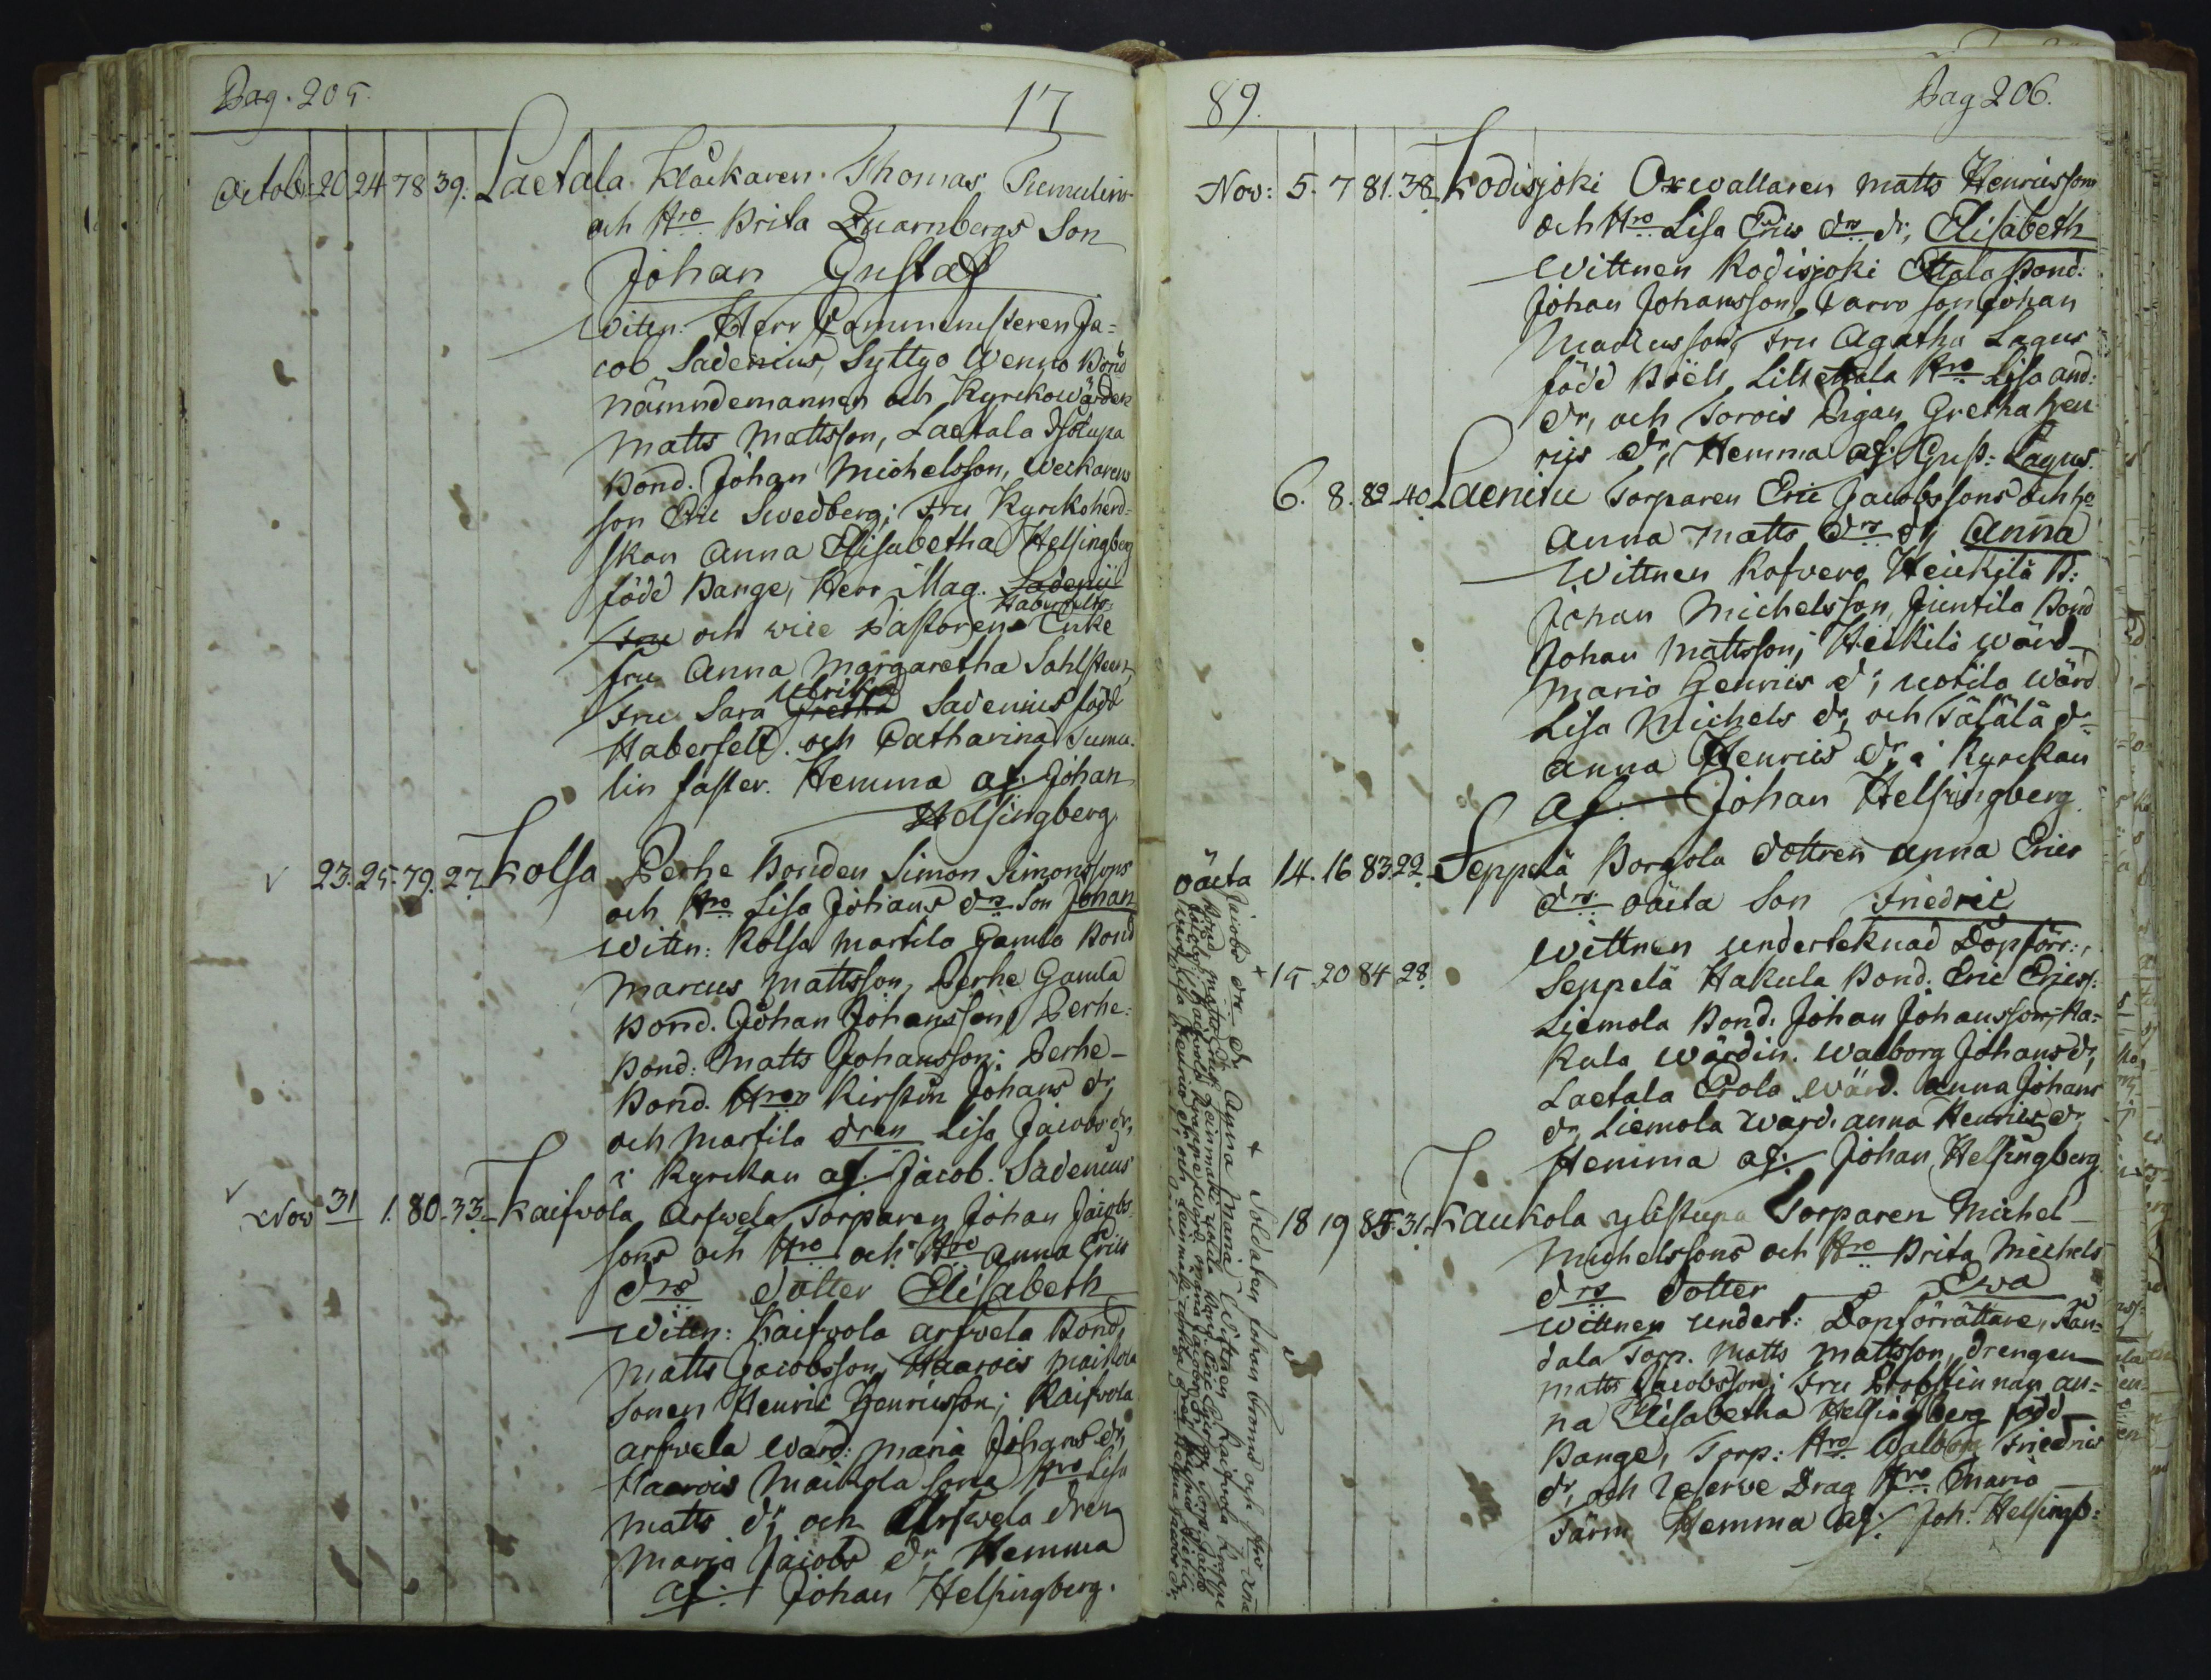 Pag. 205.
17
October 20 24 78 39. Laetala Klåckaren Thomas Tumulins
och Hro Brita Quarnbergs Son
Johan Gustaf
Witn. Herr Comminsteren Ja=
cob Sadenius, Syttyo Wenno Bond
nämndemannen och Kyrckowärden
Matts Mattsson, Laetala Isotupa
Bond. Johan Michelsson, Weckarens
son Eric Swedberg; Fru Kyrckoherd=
skan Anna Elisabetha Helsingberg
född Bange, Herr Mag. Sadenii
Haberfelts
fru och vice Pastorens Enke
fru Anna Margaretha Sahlsteen,
Ulrika
Fru Sara Gretha Sadenius född
Haberfelt. och Catharina Tumu=
lin faster. Hemma af. Johan
Helsingberg.
23. 25. 79. 27. Kolsa Perhe Bonden Simon Simonssons
och Hro Lisa Johans drs Son Johan
Witn: Kolsa Martila Gamla Bond
Marcus Mattsson, Perhe Gamla
Bond. Johan Johansson, Perhe=
Bond: Matts Johansson; Perhe-
Bond. Hron Kirstin Johans dr,
och Martila dren Lisa Jacobs dr,
i Kyrckan af. Jacob Sadenius
Nov 31 1. 80. 33. Kaifvola Arfwela Torparen Johan Jacobs=
sons och Hro och Hro Anna Erics
drs dotter Elisabeth
Witn: Kaifvola Arfwela Bond,
Matts Jacobsson, Haarois Maikola
Sonen Henric Henricsson; Kaifvola
Arfwela Ward: Maria Johans dr,
Haarois Maikola sona Hro Lisa
Matts dr; och Arfwela dren
Maria Jacobs dr, Hemma
af. Johan Helsingberg.
89.
Pag 206.
Nov: 5. 7 81. 38. Kodisjoki Oxwallaren Matts Henricssons
och Hro Lisa Erics drs dr, Elisabeth
Wittnen Kodisjoki Ettala Bond:
Johan Johansson, Varro son Johan
Madeusson, Fru Agatha Lagus
född Boëls, Lill Ettala Hro Lisa And:
dr, och Sorois Pigan Gretha Hen
rics dr, Hemma af. Gust: Lagus.
6. 8. 82 40 Laenitu Torparen Eric Jacobssons och ho
Anna Matts drs dr Anna
Wittnen Kofvero Heickilä B:
Johan Michelsson, Juntila Bond
Johan Mattsson; Heickilä wärd
Maria Henrics dr; Uotila wärd
Lisa Michels dr, och Tälälä dr
Anna Henrics dr, i Kyrckan
af. Johan Helsingberg.
oäcta 14. 16 83. 22. Seppälä Borgola dottren Anna Erics
drs oäcta Son Friedric
Wittnen undertecknad Dopförr.,
Seppelä Hakula Bond. Eric Ericss:
Liemola Bond. Johan Johansson, Ha=
kula Wärdin. Walborg Johans dr,
Laetala Erola Wärd. Anna Johans
dr, Liemola ward. Anna Henrics dr
Hemma af. Johan Helsingberg.
15. 20 84 28.
+ Soldaten Johan Broms och Hro Anna
Jacobs drs dr Anna Maria Wittnen Kaifvola Krappe
18 19 85 31. Kaukola ylistupa Torparen Michel
Michelssons och Hro Brita Michels
drs dotter Ewa
Wittnen undert: Dopförrättare, Kan=
dala Torp. Matts Mattsson, drengen
Matts Jacobsson; Fru Probstinnan An=
na Elisabetha Helsingberg född
Bange, Torp: Hro Walborg Friedrics
dr, och Reserve Drag Hro Maria
Tärm Hemma af. Joh. Helsingb: